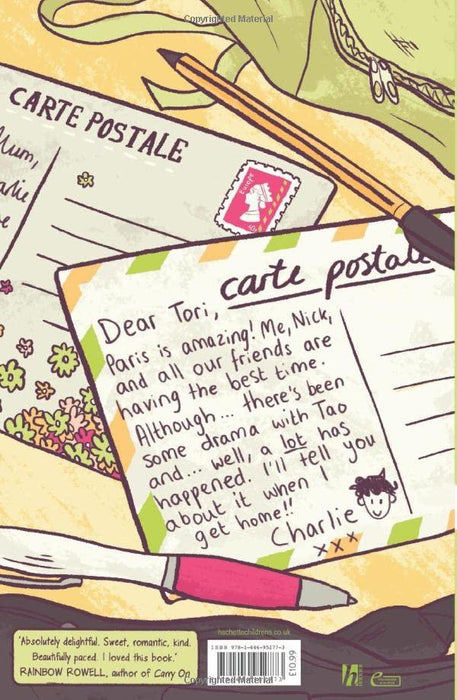 Copyrighted Material
CARTE POSTALE
Mum,
Europe
carte postale
Dear Tori,
Paris is amazing! Me, Nick,
and all our friends are
having the best time.
Although... there's been
some drama with Tao
and... well, a lot has
happened. I'll tell you
about it when I
get home!!
Charlie
xxx
'Absolutely delightful. Sweet, romantic, kind.
Beautifully paced. I loved this book.'
RAINBOW ROWELL, author of Carry On
hachettechildrens.co.uk
£10.99
Copyrighted Material